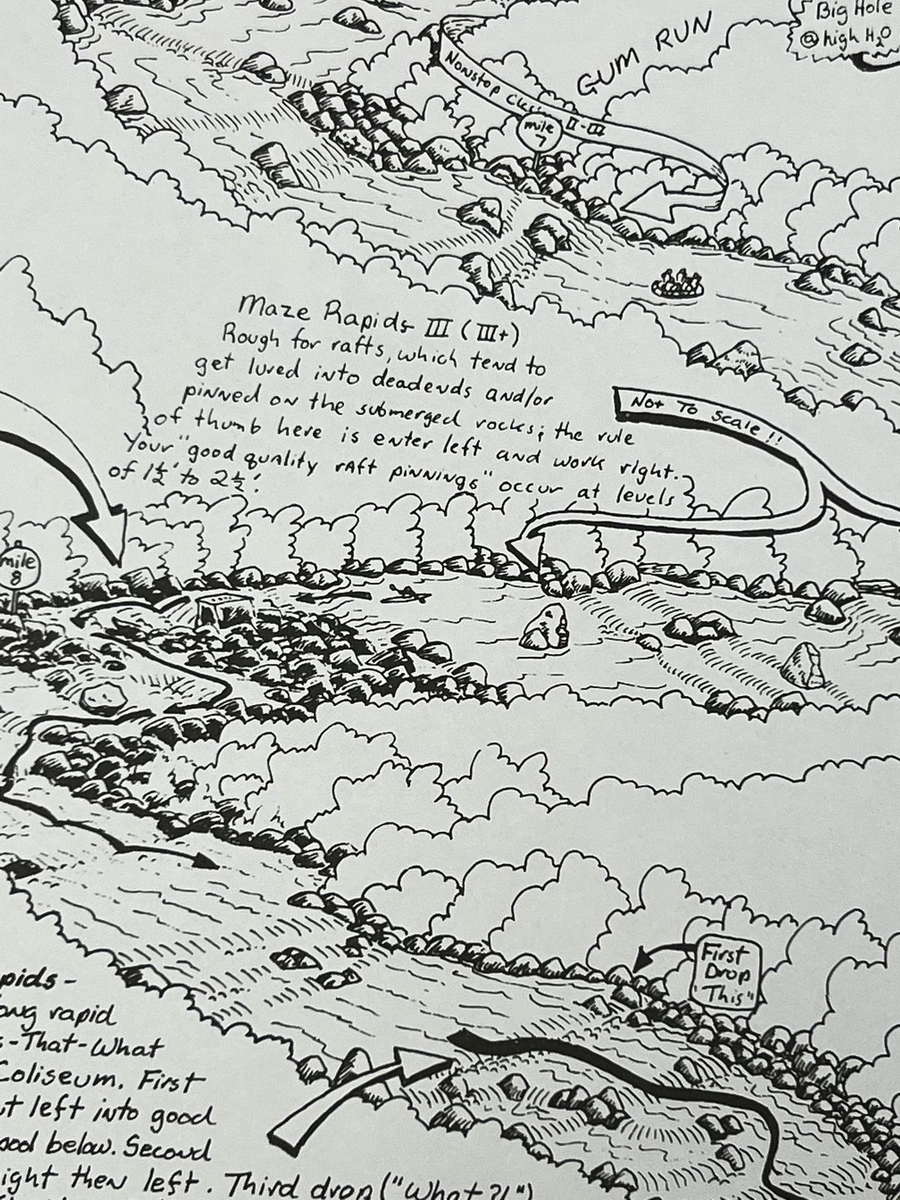 Big Hole
@ high H2O
GUM RUN
Nonstop Class II-III
mile
7
Maze Rapids III (III+)
Rough for rafts, which tend to
get lured into deadends and/or
pinned on the submerged rocks; the rule
of thumb here is enter left and work right.
Your "good quality raft pinnings" occur at levels
of 1½' to 2½'.
Not To Scale!!
mile
8
First
Drop
"This"
pids-
ong rapid
s-That-What
Coliseum. First
t left into good
ool below. Second
ight then left. Third drop ("What?!")